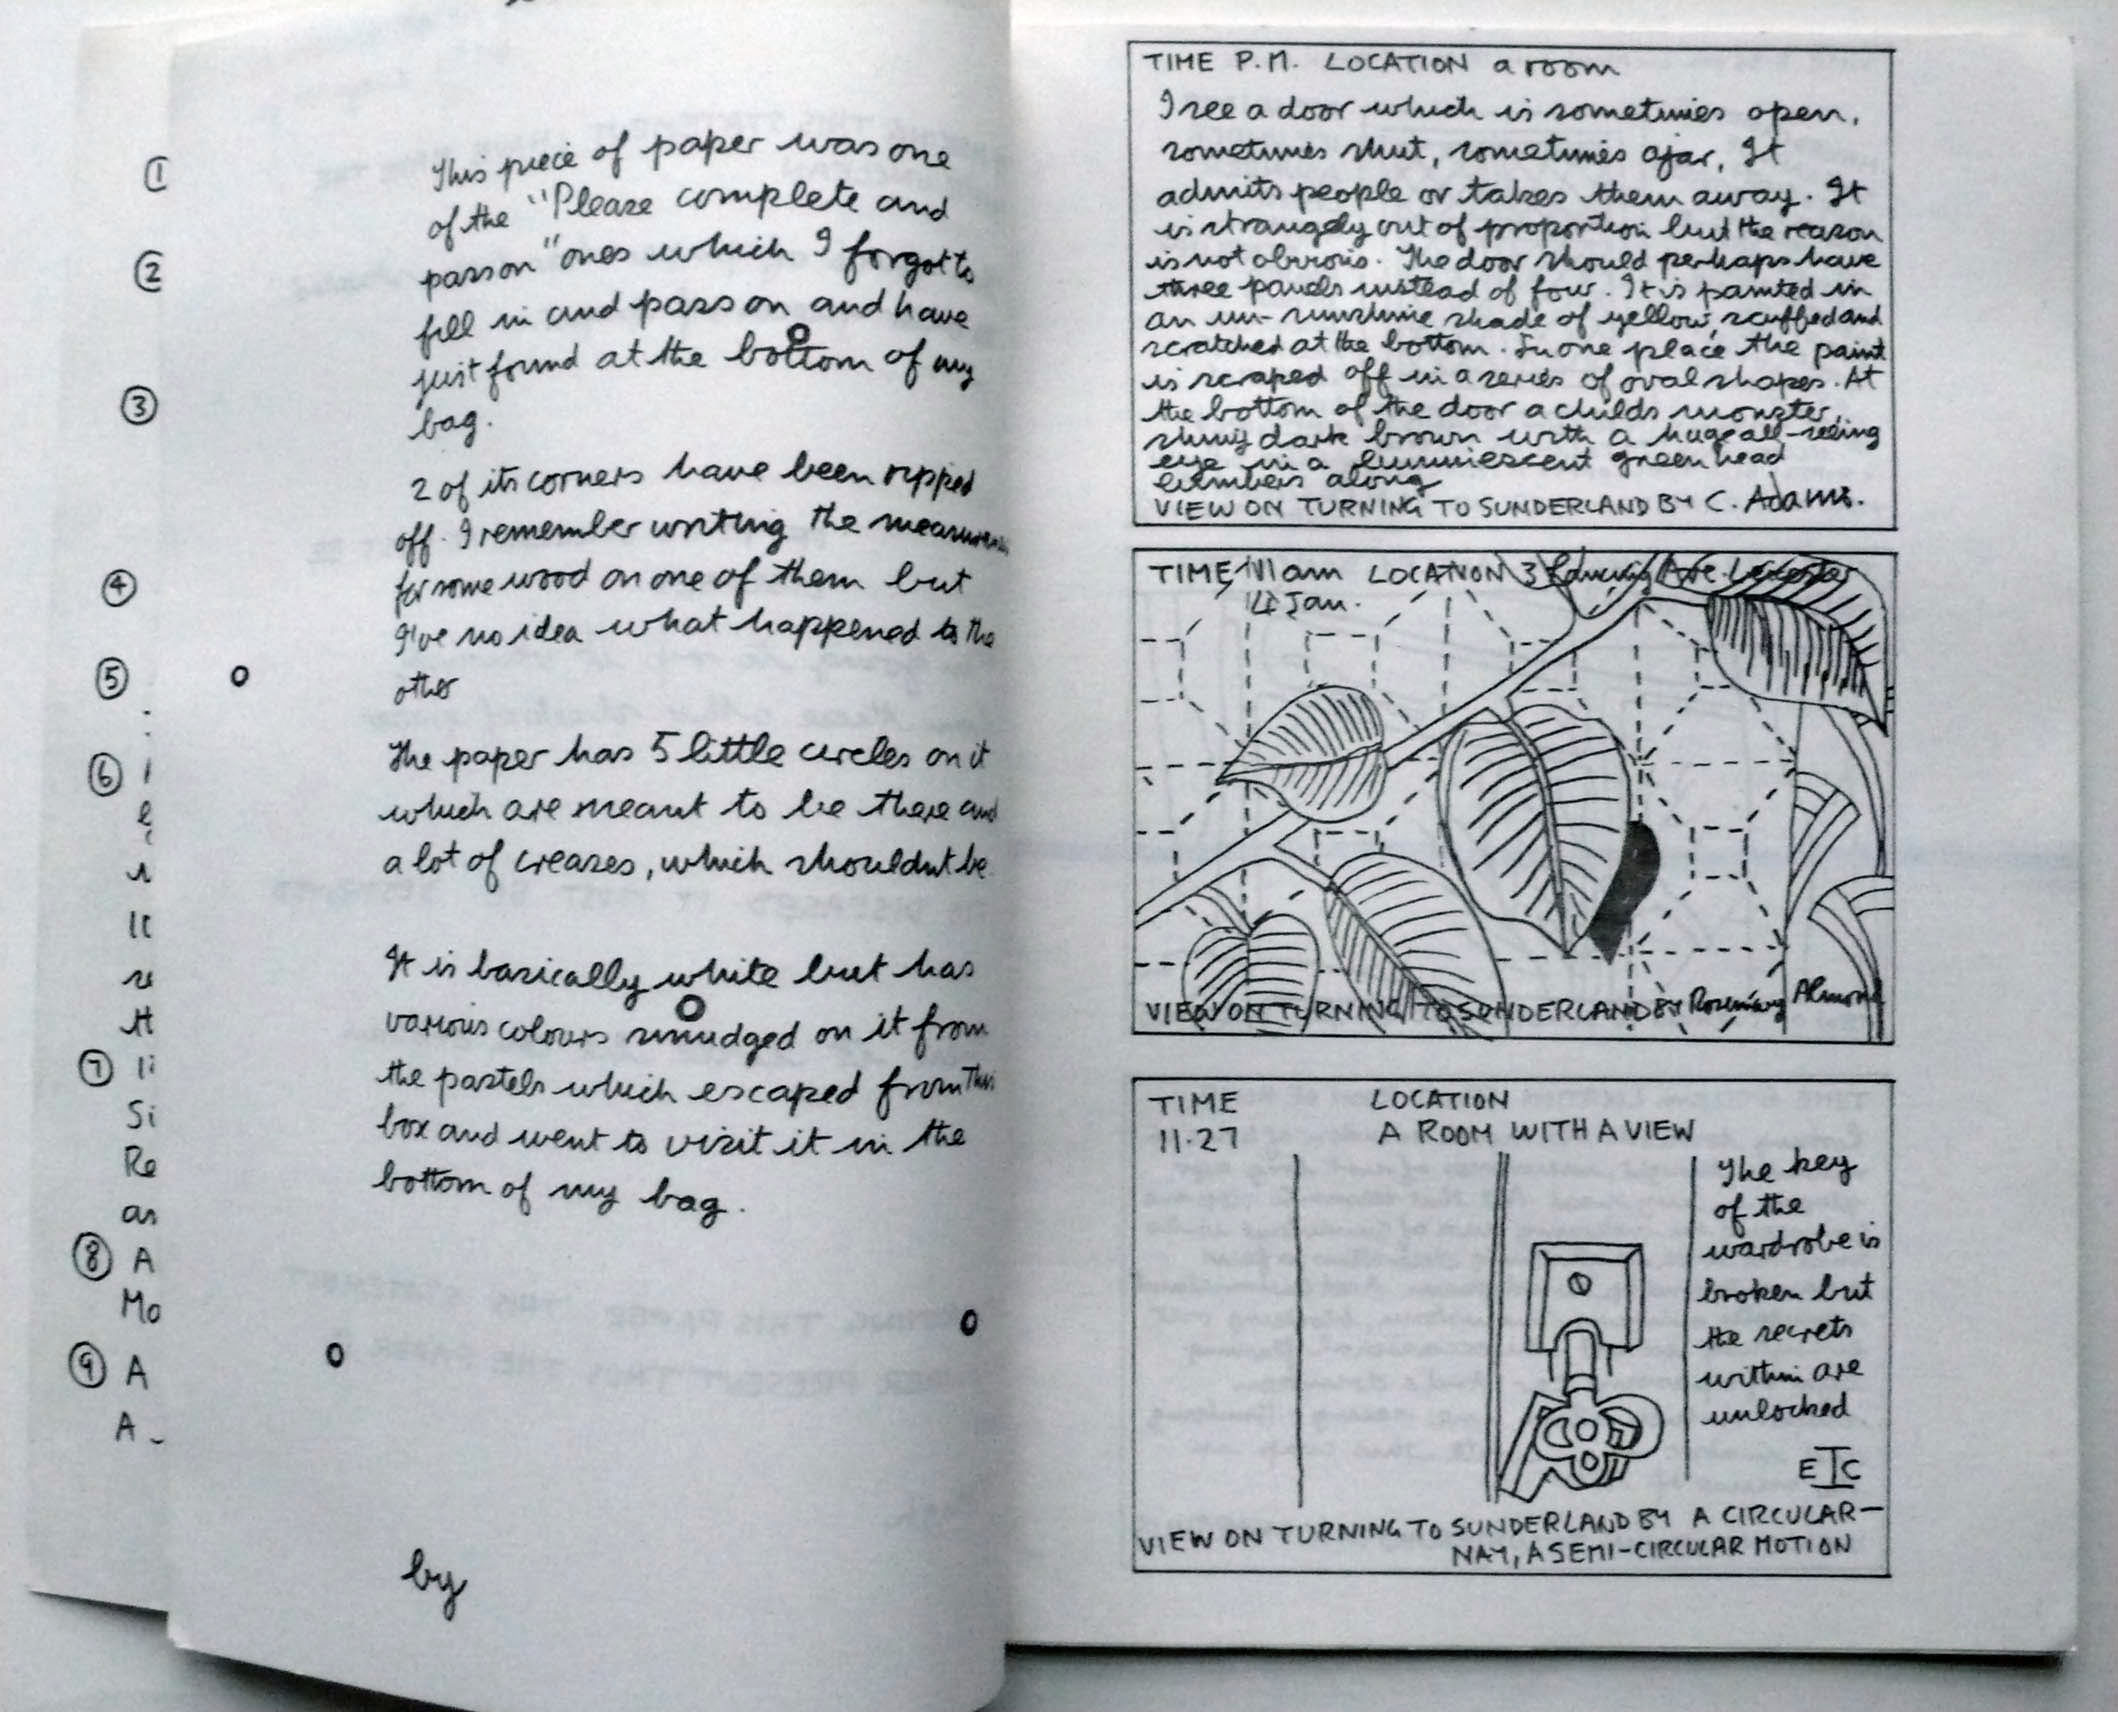 ①
②
③
④
⑤
⑥
⑦
Si
Re
as
⑧ A
Mo
⑨ A
A
This piece of paper was one
of the "Please complete and
pass on" ones which I forgot to
fill in and pass on and have
just found at the bottom of my
bag.
2 of its corners have been ripped
off. I remember writing the
for some wood on one of them but
I've no idea what happened to the
other
The paper has 5 little circles on it
which are meant to be there and
a lot of creases, which shouldnt be.
It is basically white but has
various colours smudged on it from
the pastels which escaped from their
box and went to visit it in the
bottom of my bag.
by
TIME P.M. LOCATION a room
I see a door which is sometimes open,
sometimes shut, sometimes ajar. It
admits people or takes them away. It
is strangely out of proportion but the reason
is not obvious. The door should perhaps have
three panels instead of four. It is painted in
an un-sunshine shade of yellow, scuffed and
scratched at the bottom. In one place the paint
is scraped off in a series of oval shapes. At
the bottom of the door a childs monster,
shiny dark brown with a huge all-seeing
eye in a luminescent green head
lumbers along
VIEW ON TURNING TO SUNDERLAND BY C. Adams.
TIME 11am LOCATION 3 Ave. Leicester
4 Jan.
VIEW ON TURNING TO SUNDERLAND BY Rosemary Almond
TIME LOCATION
11.27 A ROOM WITH A VIEW
The key
of the
wardrobe is
broken but
the secrets
within are
unlocked
EIC
VIEW ON TURNING TO SUNDERLAND BY A CIRCULAR—
NAY, A SEMI-CIRCULAR MOTION